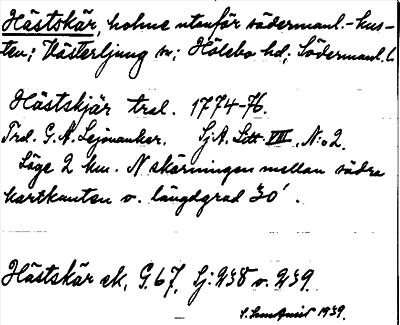 Hästskär, holme utanför södermanl.-kus-
ten; Västerljung sn; Hölebo hd; Södermanl. l.
Hästskjär trol. 1774-76.
Trol. G. A. Lejonanker. SjA. Litt. VIII, N:o 2.
Läge 2 km. N skärningen mellan södra
kartkanten o. längdgrad 30'.
Hästskär ek, G. 67, Sj: 238 o. 239.
1939.